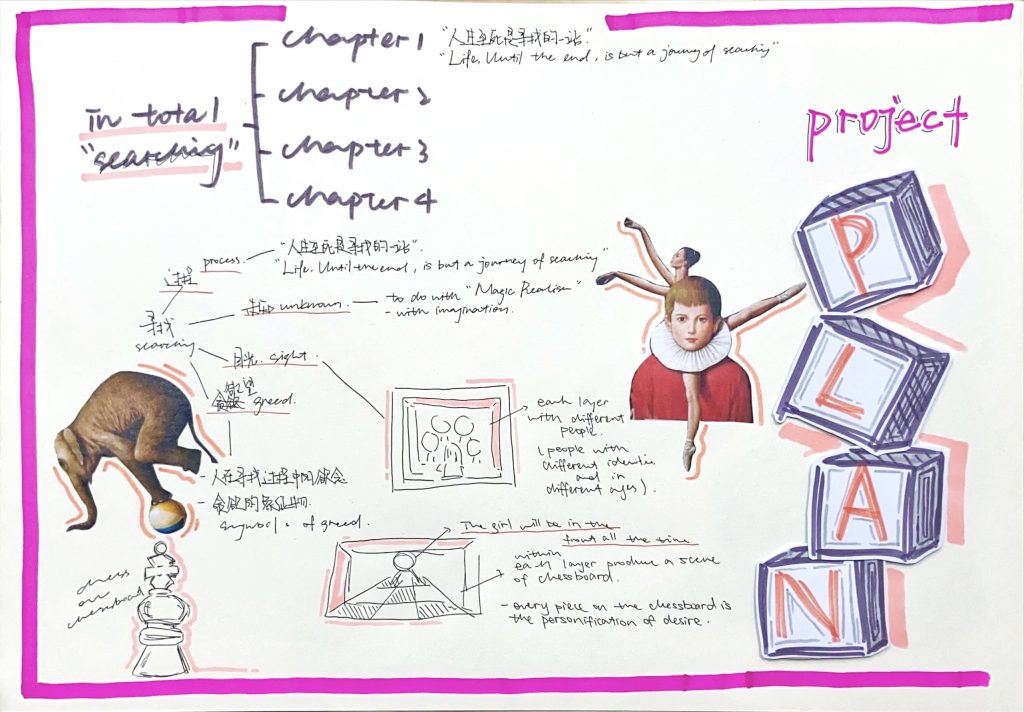 chapter 1 "人生至死是寻找的一站"
"Life, Until the end, is but a jouney of seaching"
chapter 2
in total
"searching"
chapter 3
chapter 4
project
PLAN
过程 process. "人生至死是寻找的一站".
"Life, Until the end, is but a journey of seaching"
unknown. to do with "Magic Realism"
- with imagination.
寻找
searching
目光. sight.
欲望
greed.
each layer
with different
people.
(people with
different identities
and in
different ages).
- 人在寻找过程中的贪念
- 贪欲的象征物.
symbols of greed.
The girl will be in the
front all the time
within
each layer produce a scene
of chessboard.
- every piece on the chessboard is
the personification of desire.
chess
on
chessboard